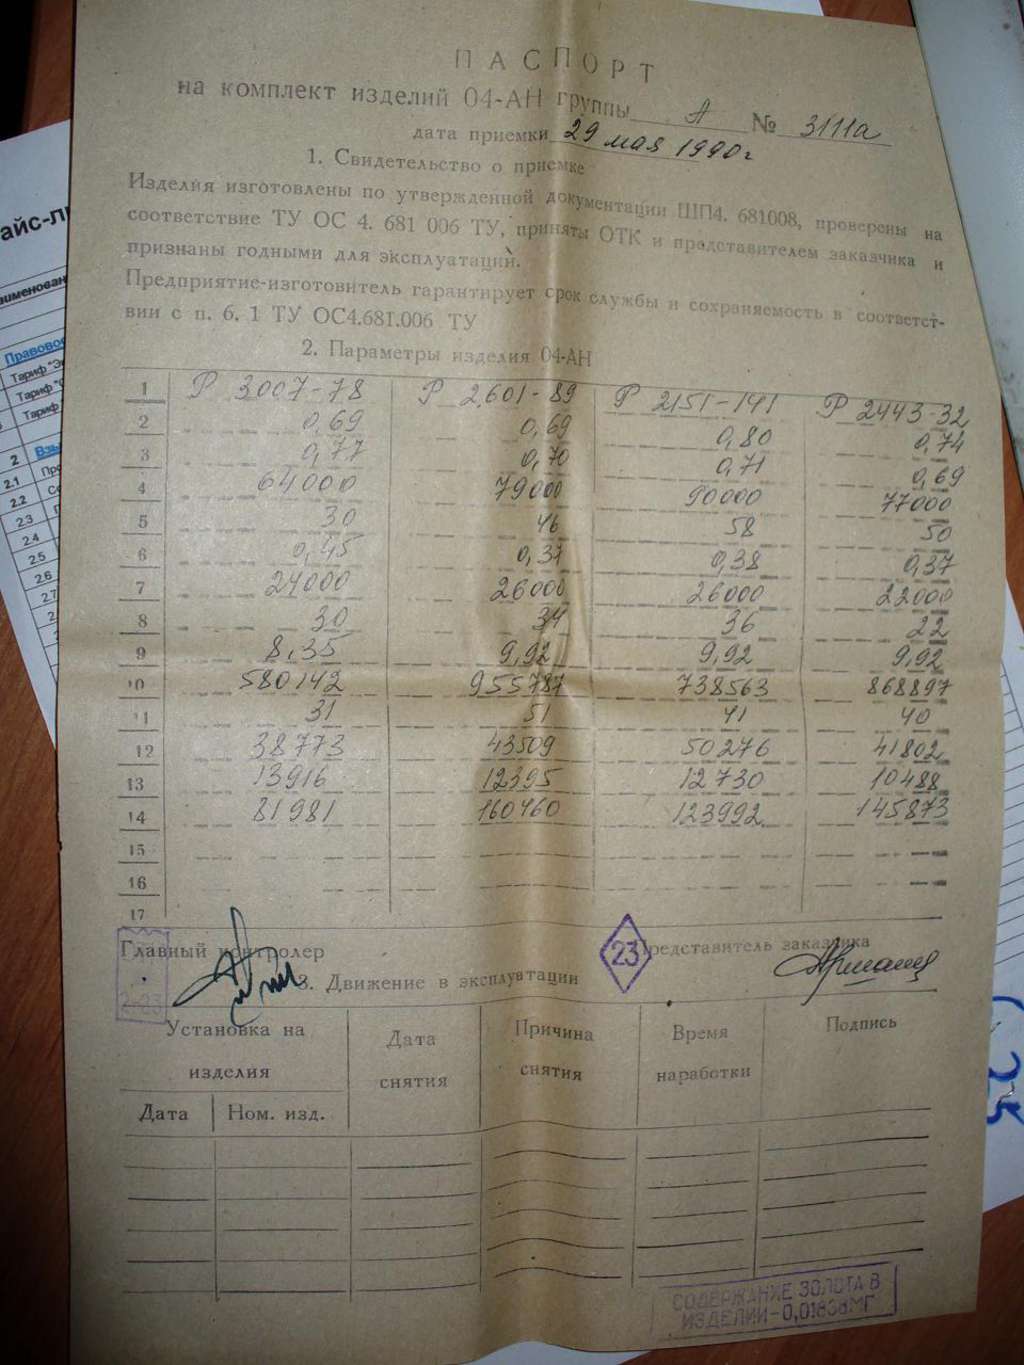 ПАСПОРТ
на комплект изделий 04-АН группы А № 3111а
дата приемки 29 мая 1990г
1. Свидетельство о приемке
Изделия изготовлены по утвержденной документации ШП4. 681008, проверены на
соответствие ТУ ОС 4. 681 006 ТУ, приняты ОТК и представителем заказчика и
признаны годными для эксплуатации.
Предприятие-изготовитель гарантирует срок службы и сохраняемость в соответст-
вии с п. 6. 1 ТУ ОС4.681.006 ТУ
2. Параметры изделия 04-АН
1 Р 3007-78 Р 2601-89 Р 2151-141 Р 2443-32
2 0,69 0,69 0,80 0,74
3 0,77 0,70 0,71 0,69
4 64000 79000 90000 77000
5 30 46 58 50
6 0,45 0,37 0,38 0,37
7 24000 26000 26000 22000
8 30 34 36 22
9 8,35 9,92 9,92 9,92
10 580142 955787 738563 868897
11 31 51 41 40
12 38773 43509 50276 41802
13 13916 12395 12730 10488
14 81981 160460 123992 145873
15
16
17
Главный контролер 23 Представитель заказчика
2-23
3. Движение в эксплуатации
Установка на изделия Дата снятия Причина снятия Время наработки Подпись
Дата Ном. изд.
СОДЕРЖАНИЕ ЗОЛОТА В
ИЗДЕЛИИ-0,01838МГ
айс-л
аименован
Правовое
Тариф "Э
Тариф "
Тариф
2 Взы
2.1 Про
2.2 Со
2.3 П
2.4
2.5
2.6
2.7